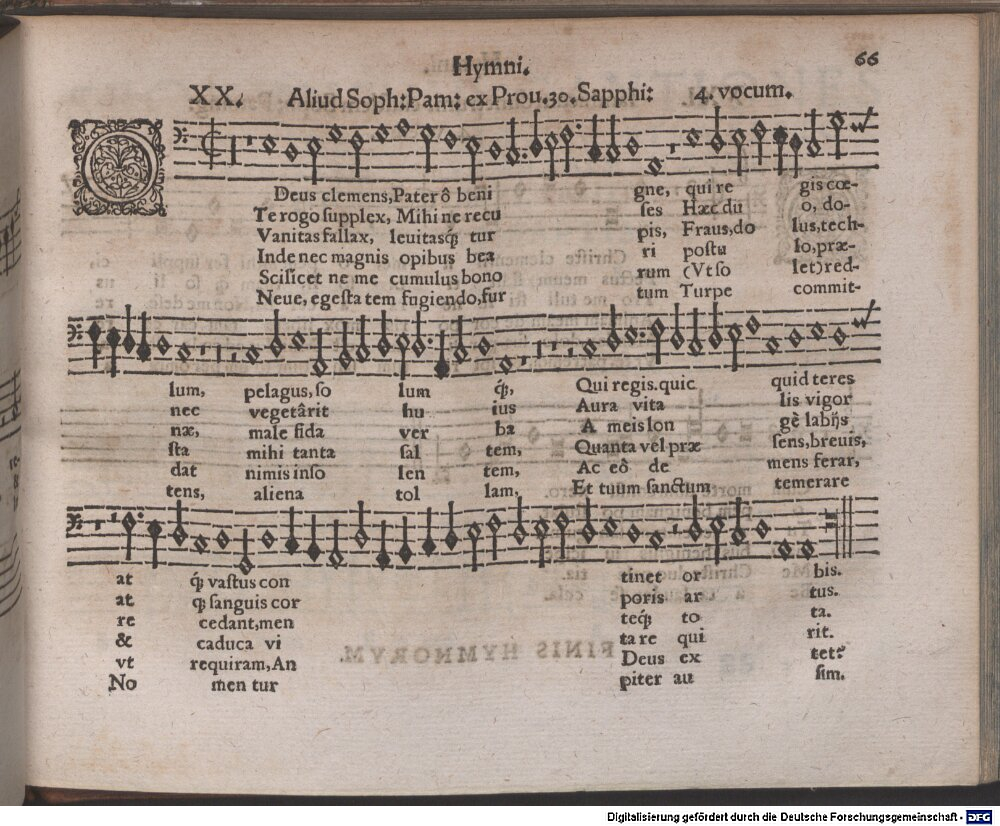 Hymni.
66
XX. Aliud Soph:Pam: ex Prou.30. Sapphi: 4. vocum.
O Deus clemens, Pater ô beni gne, qui re gis cœ-
Te rogo supplex, Mihi ne recu ses Hæc du o, do-
Vanitas fallax, leuitasq́; tur pis, Fraus, do lus, tech-
Inde nec magnis opibus bea ri postu lo, præ-
Scilicet ne me cumulus bono rum (Vt so let) red-
Neue, egesta tem fugiendo, fur tum Turpe commit-
lum, pelagus, so lum q́;, Qui regis. quic quid teres
nec vegetârit hu ius Aura vita lis vigor
næ, male fida ver ba A meis lon gè labijs
sta mihi tanta sal tem, Quanta vel præ sens, breuis,
dat nimis inso len tem, Ac eô de mens ferar,
tens, aliena tol lam, Et tuum sanctum temerare
at q́; vastus con tinet or bis.
at q; sanguis cor poris ar tus.
re cedant, men teq́; to ta.
& caduca vi ta re qui rit.
vt requiram, An Deus ex tet?
No men tur piter au sim.
FINIS HYMNORVM.
Digitalisierung gefördert durch die Deutsche Forschungsgemeinschaft - DFG